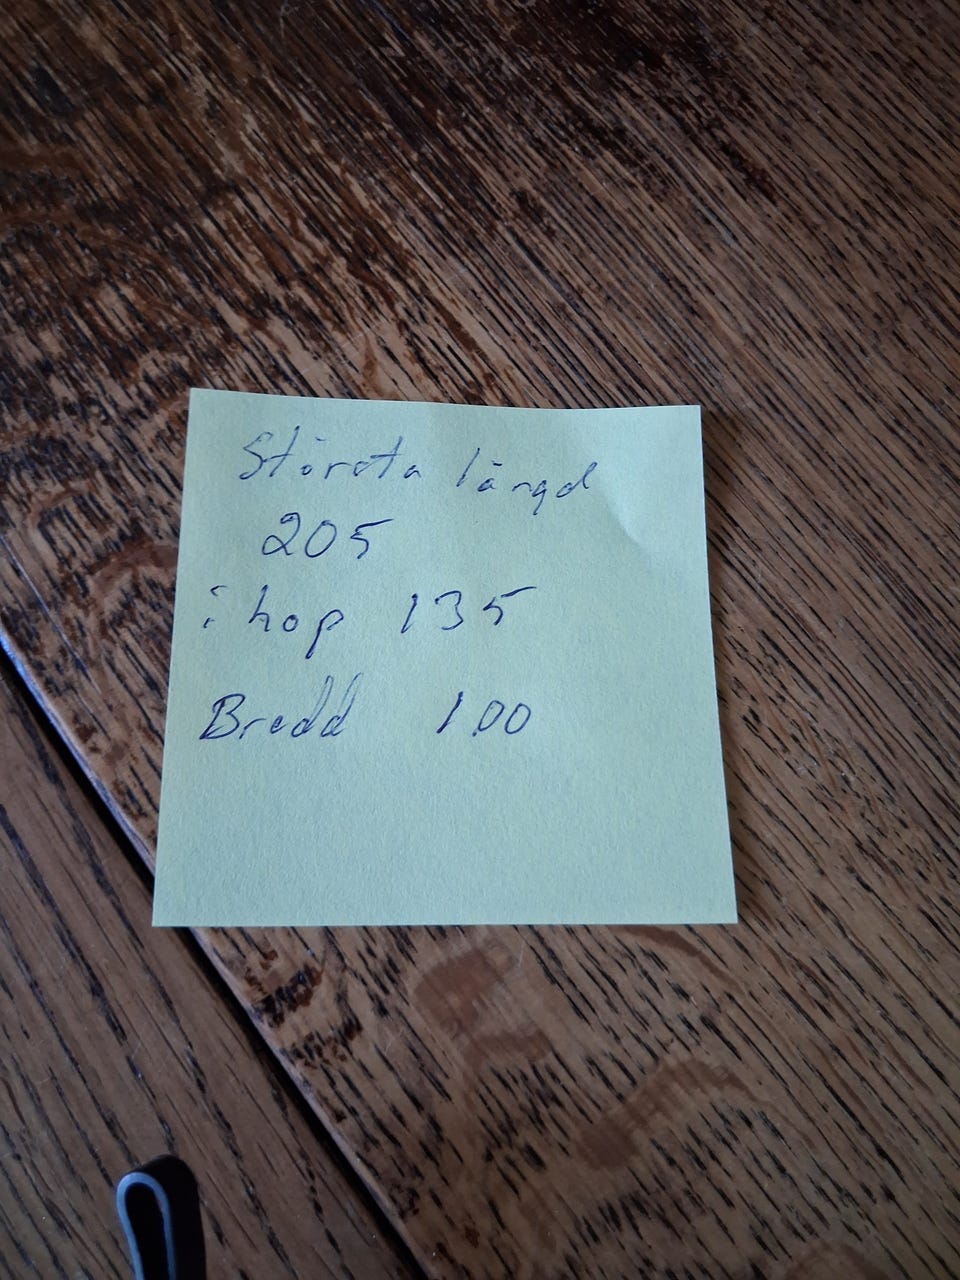 Största längd
205
i hop 135
Bredd 100